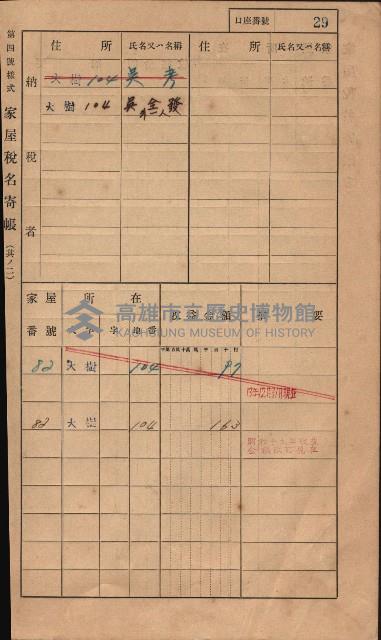 口座番號 29
第四號樣式 家屋稅名寄帳 (其ノ二)
納稅者
住所 氏名又ハ名稱 住所 氏名又ハ名稱
大樹 104 吳考
大樹 104 吳金發 外一人
家屋番號 所在 摘要
大字 字 地番
82 大樹 104 97
82 大樹 104 163
高雄市立歷史博物館
KAOHSIUNG MUSEUM OF HISTORY